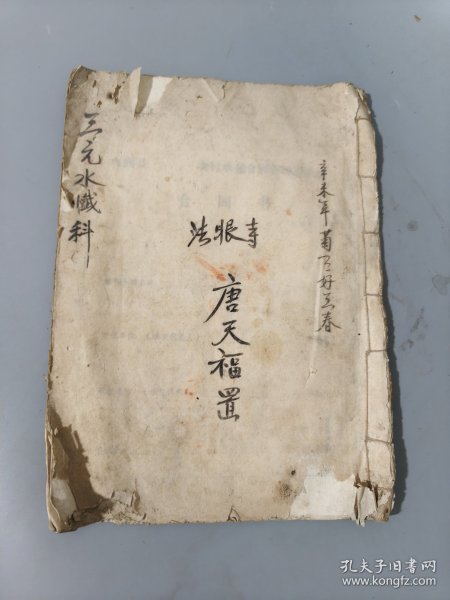 辛未年
好立春
法眼寺
唐天福置
三元水懺科
孔夫子旧书网
www.kongfz.com